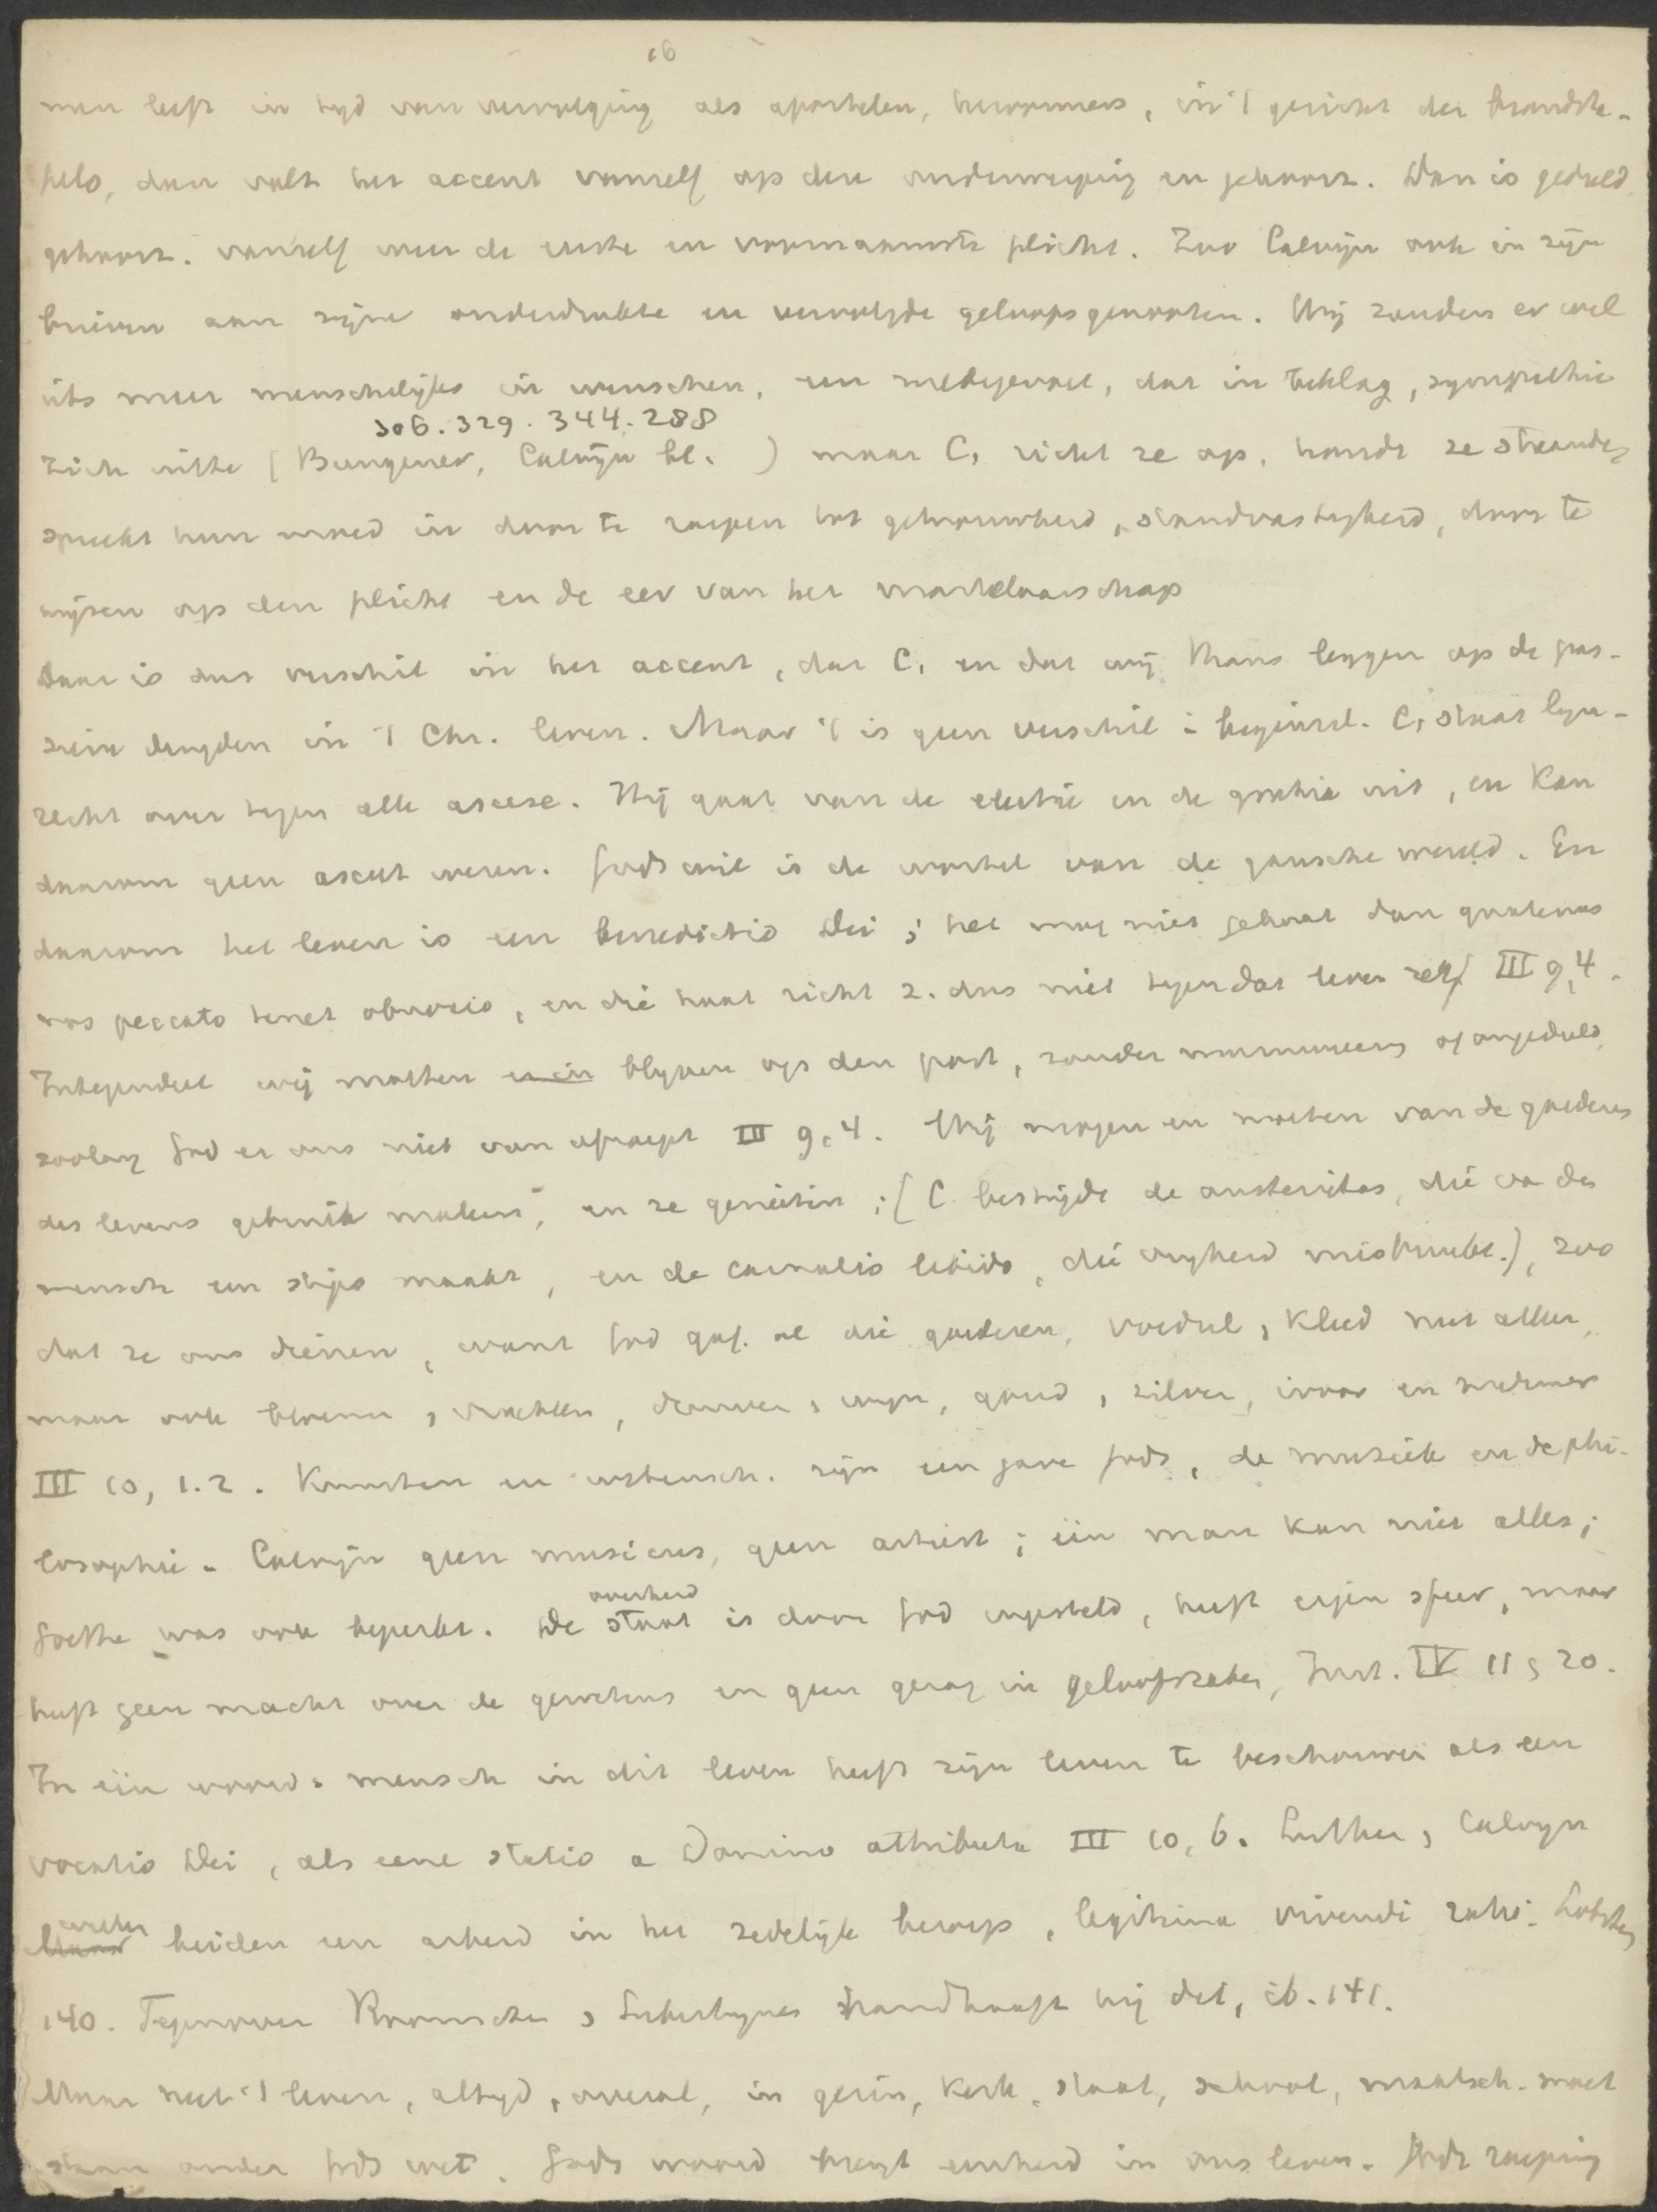 16
men leeft in tyd van vervolging als apostelen, hervormers, in 't gericht der brandsta-
pels, dan valt het accent vanzelf op den onderwerping en gehoorz. Dan is geduld,
gehoorz. vanzelf weer de eerste en voornaamste plicht. Zoo Calvijn ook in zijn
brieven aan zijne onderdrukte en vervolgde geloofsgenooten. Wij zouden er wel
iets meer menschelijks in wenschen, een medegevoel, dat in beklag, sympathie
306. 329. 344. 288
zich uitte (Bungener, Calvijn bl. ) maar C. richt ze op, houdt ze staande,
spreekt hun moed in door te roepen tot getrouwheid, standvastigheid, door te
wijzen op den plicht en de eer van het martelaarschap
Daar is dus verschil in het accent, dat C. en dat wij thans leggen op de pas-
sieve deugden in 't Chr. leven. Maar 't is geen verschil in beginsel. C. staat lijn-
recht over tegen alle ascese. Hij gaat van de electie en de gratia uit, en kan
daarom geen asceet wezen. Gods wil is de wortel van de gansche wereld. En
daarom het leven is een benedictio Dei; het mag niet gehaat dan quatenus
nos peccato tenet obnoxios, en die haat richt z. dus niet tegen dat leven zelf III 9, 4.
Integendeel wij moeten blyven op den post, zonder murmureeren of ongeduld,
zoolang God er ons niet van afroept III 9, 4. Wij mogen en moeten van de goederen
des levens gebruik maken, en ze genieten; (C bestrijdt de austeritas, die van den
mensch een stips maakt, en de carnalis libido, die vryheid misbruikt.), zoo
dat ze ons dienen, want God gaf. al die goederen, voedsel, kleed niet alleen,
maar ook bloemen, vruchten, kleuren, wijn, goud, zilver, ivoor en marmer
III 10, 1. 2. Kunsten en wetensch. zijn een gave Gods, de muziek en de phi-
losophie. Calvijn geen musicus, geen artist; één man kan niet alles;
Goethe was ook beperkt. De staat is door God ingesteld, heeft eigen sfeer, maar
overheid
heeft geen macht over de gewetens en geen gezag in geloofszaken, Inst. IV 11, 20.
In één woord. mensch in dit leven heeft zijn leven te beschouwen als een
vocatio Dei, als eene statio a Domino attributa III 10, 6. Luther, Calvyn
beiden een arbeid in het zedelijk beroep, legitima vivendi ratio. Lobstein
140. Tegenover Roomschen, Libertijnen handhaaft hij dat, ib. 141.
Maar heel 't leven, altyd, overal, in gezin, kerk, staat, school, maatsch. moet
staan onder Gods wet. Gods woord brengt eenheid in ons leven. Gods roeping